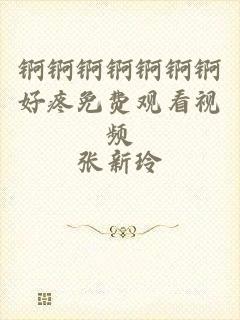 锕锕锕锕锕锕锕
好疼免费观看视
频
张新玲